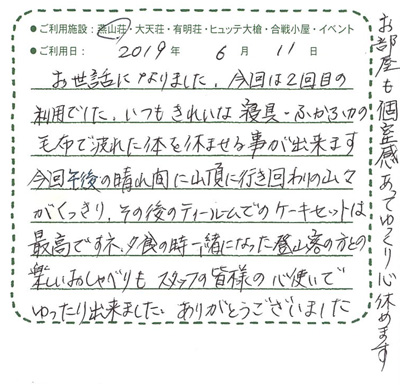 ●ご利用施設：燕山荘・大天荘・有明荘・ヒュッテ大槍・合戦小屋・イベント
●ご利用日： 2019 年 6 月 11 日
お世話になりました。今回は2回目の
利用でした。いつもきれいな寝具・ふかふかの
毛布で疲れた体を休ませる事が出来ます
今回午後の晴れ間に山頂に行き回わりの山々
がくっきり。その後のティールームでのケーキセットは
最高ですネ。夕食の時一緒になった登山客の方との
楽しいおしゃべりも スタッフの皆様の心使いで
ゆったり出来ました。ありがとうございました
お部屋も個室感あってゆっくり心休めます